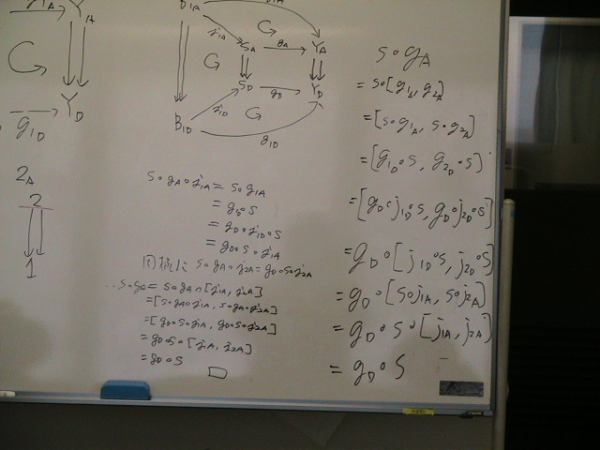 g₁A Y_A
B₁A
j₁A S_A g_A Y_A
S_D g_D Y_D
g₁D Y_D
B₁D j₁D g₁D
2_A
2
1
s∘g_A∘j₁A = s∘g₁A
= g₁D∘s
= g_D∘j₁D∘s
= g_D∘s∘j₁A
同様に s∘g_A∘j₂A = g_D∘s∘j₂A
∴ s∘g_A = s∘g_A∘[j₁A, j₂A]
= [s∘g_A∘j₁A, s∘g_A∘j₂A]
= [g_D∘s∘j₁A, g_D∘s∘j₂A]
= g_D∘s∘[j₁A, j₂A]
= g_D∘s
□
s∘g_A
= s∘[g₁A, g₂A]
= [s∘g₁A, s∘g₂A]
= [g₁D∘s, g₂D∘s]
= [g_D∘j₁D∘s, g_D∘j₂D∘s]
= g_D∘[j₁D∘s, j₂D∘s]
= g_D∘[s∘j₁A, s∘j₂A]
= g_D∘s∘[j₁A, j₂A]
= g_D∘s